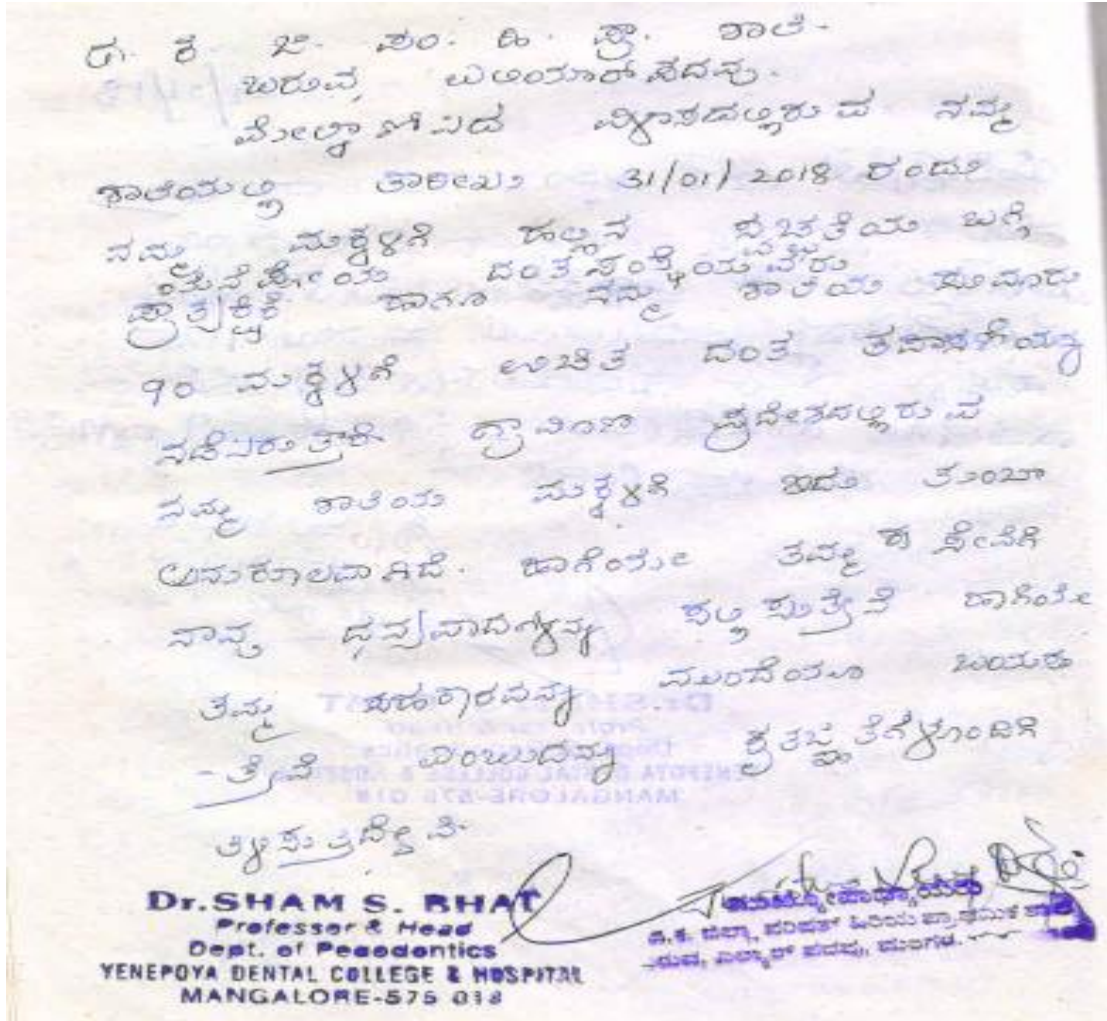 ದ. ಕ. ಜಿ. ಪಂ. ಹಿ. ಪ್ರಾ. ಶಾಲೆ.
ಬರುವ,
ಮೇಲ್ಕಾಣಿಸಿದ ವಿಳಾಸದಲ್ಲಿರುವ ನಮ್ಮ
ಶಾಲೆಯಲ್ಲಿ ತಾರೀಖು 31/01/2018 ರಂದು
ನಮ್ಮ ಮಕ್ಕಳಿಗೆ ಹಲ್ಲಿನ ಸ್ವಚ್ಛತೆಯ ಬಗ್ಗೆ
ದಂತ ಸಂಸ್ಥೆಯವರು
ಪ್ರಾತ್ಯಕ್ಷಿಕೆ ಹಾಗೂ ನಮ್ಮ ಶಾಲೆಯ ಸುಮಾರು
90 ಮಕ್ಕಳಿಗೆ ಉಚಿತ ದಂತ ತಪಾಸಣೆಯನ್ನು
ನಡೆಸಿರುತ್ತಾರೆ. ಗ್ರಾಮೀಣ ಪ್ರದೇಶದಲ್ಲಿರುವ
ನಮ್ಮ ಶಾಲೆಯ ಮಕ್ಕಳಿಗೆ ಇದು ತುಂಬಾ
ಅನುಕೂಲವಾಗಿದೆ. ಹಾಗೆಯೇ ತಮ್ಮ ಈ ಸೇವೆಗೆ
ನಾವು ಧನ್ಯವಾದಗಳನ್ನು ಸಲ್ಲಿಸುತ್ತೇವೆ ಹಾಗೆಯೇ
ತಮ್ಮ ಸಹಕಾರವನ್ನು ಮುಂದೆಯೂ ಬಯಸು
-ತ್ತೇವೆ ಎಂಬುದನ್ನು ಕೃತಜ್ಞತೆಗಳೊಂದಿಗೆ
ತಿಳಿಸುತ್ತಿದ್ದೇವೆ.
Dr.SHAM S. BHAT
Professor & Head
Dept. of Pedodontics
YENEPOYA DENTAL COLLEGE & HOSPITAL
MANGALORE-575 018
ಮುಖ್ಯೋಪಾಧ್ಯಾಯರು
ದ.ಕ. ಜಿಲ್ಲಾ ಪಂಚಾಯತ್ ಹಿರಿಯ ಪ್ರಾಥಮಿಕ ಶಾಲೆ